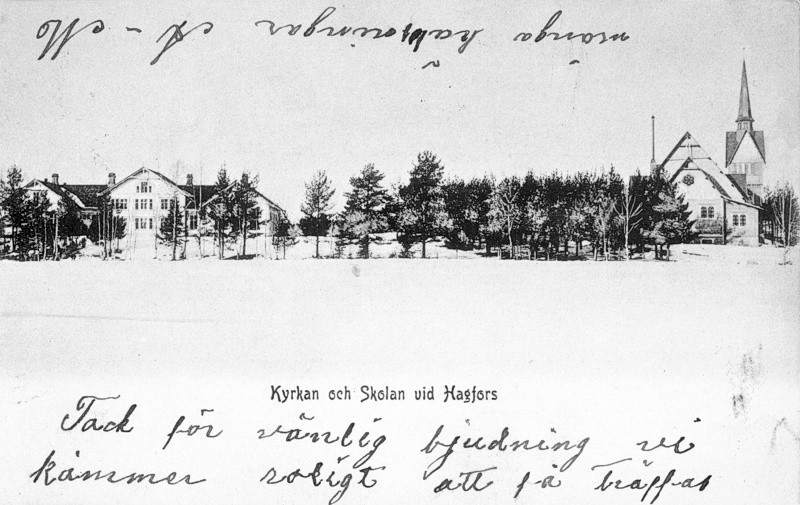 Kyrkan och Skolan vid Hagfors
Tack för vänlig bjudning vi
kåmmer roligt att få träffas
många hälsningar